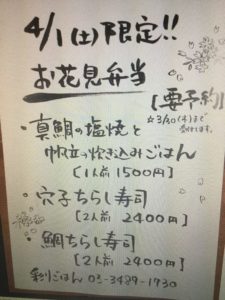 4/1(土)限定!!
お花見弁当
[要予約]
☆3/30(木)まで
受付します。
・真鯛の塩焼と
帆立の炊き込みごはん
[1人前 1500円]
・穴子ちらし寿司
[2人前 2400円]
・鯛ちらし寿司
[2人前 2400円]
彩りごはん 03-3489-1730